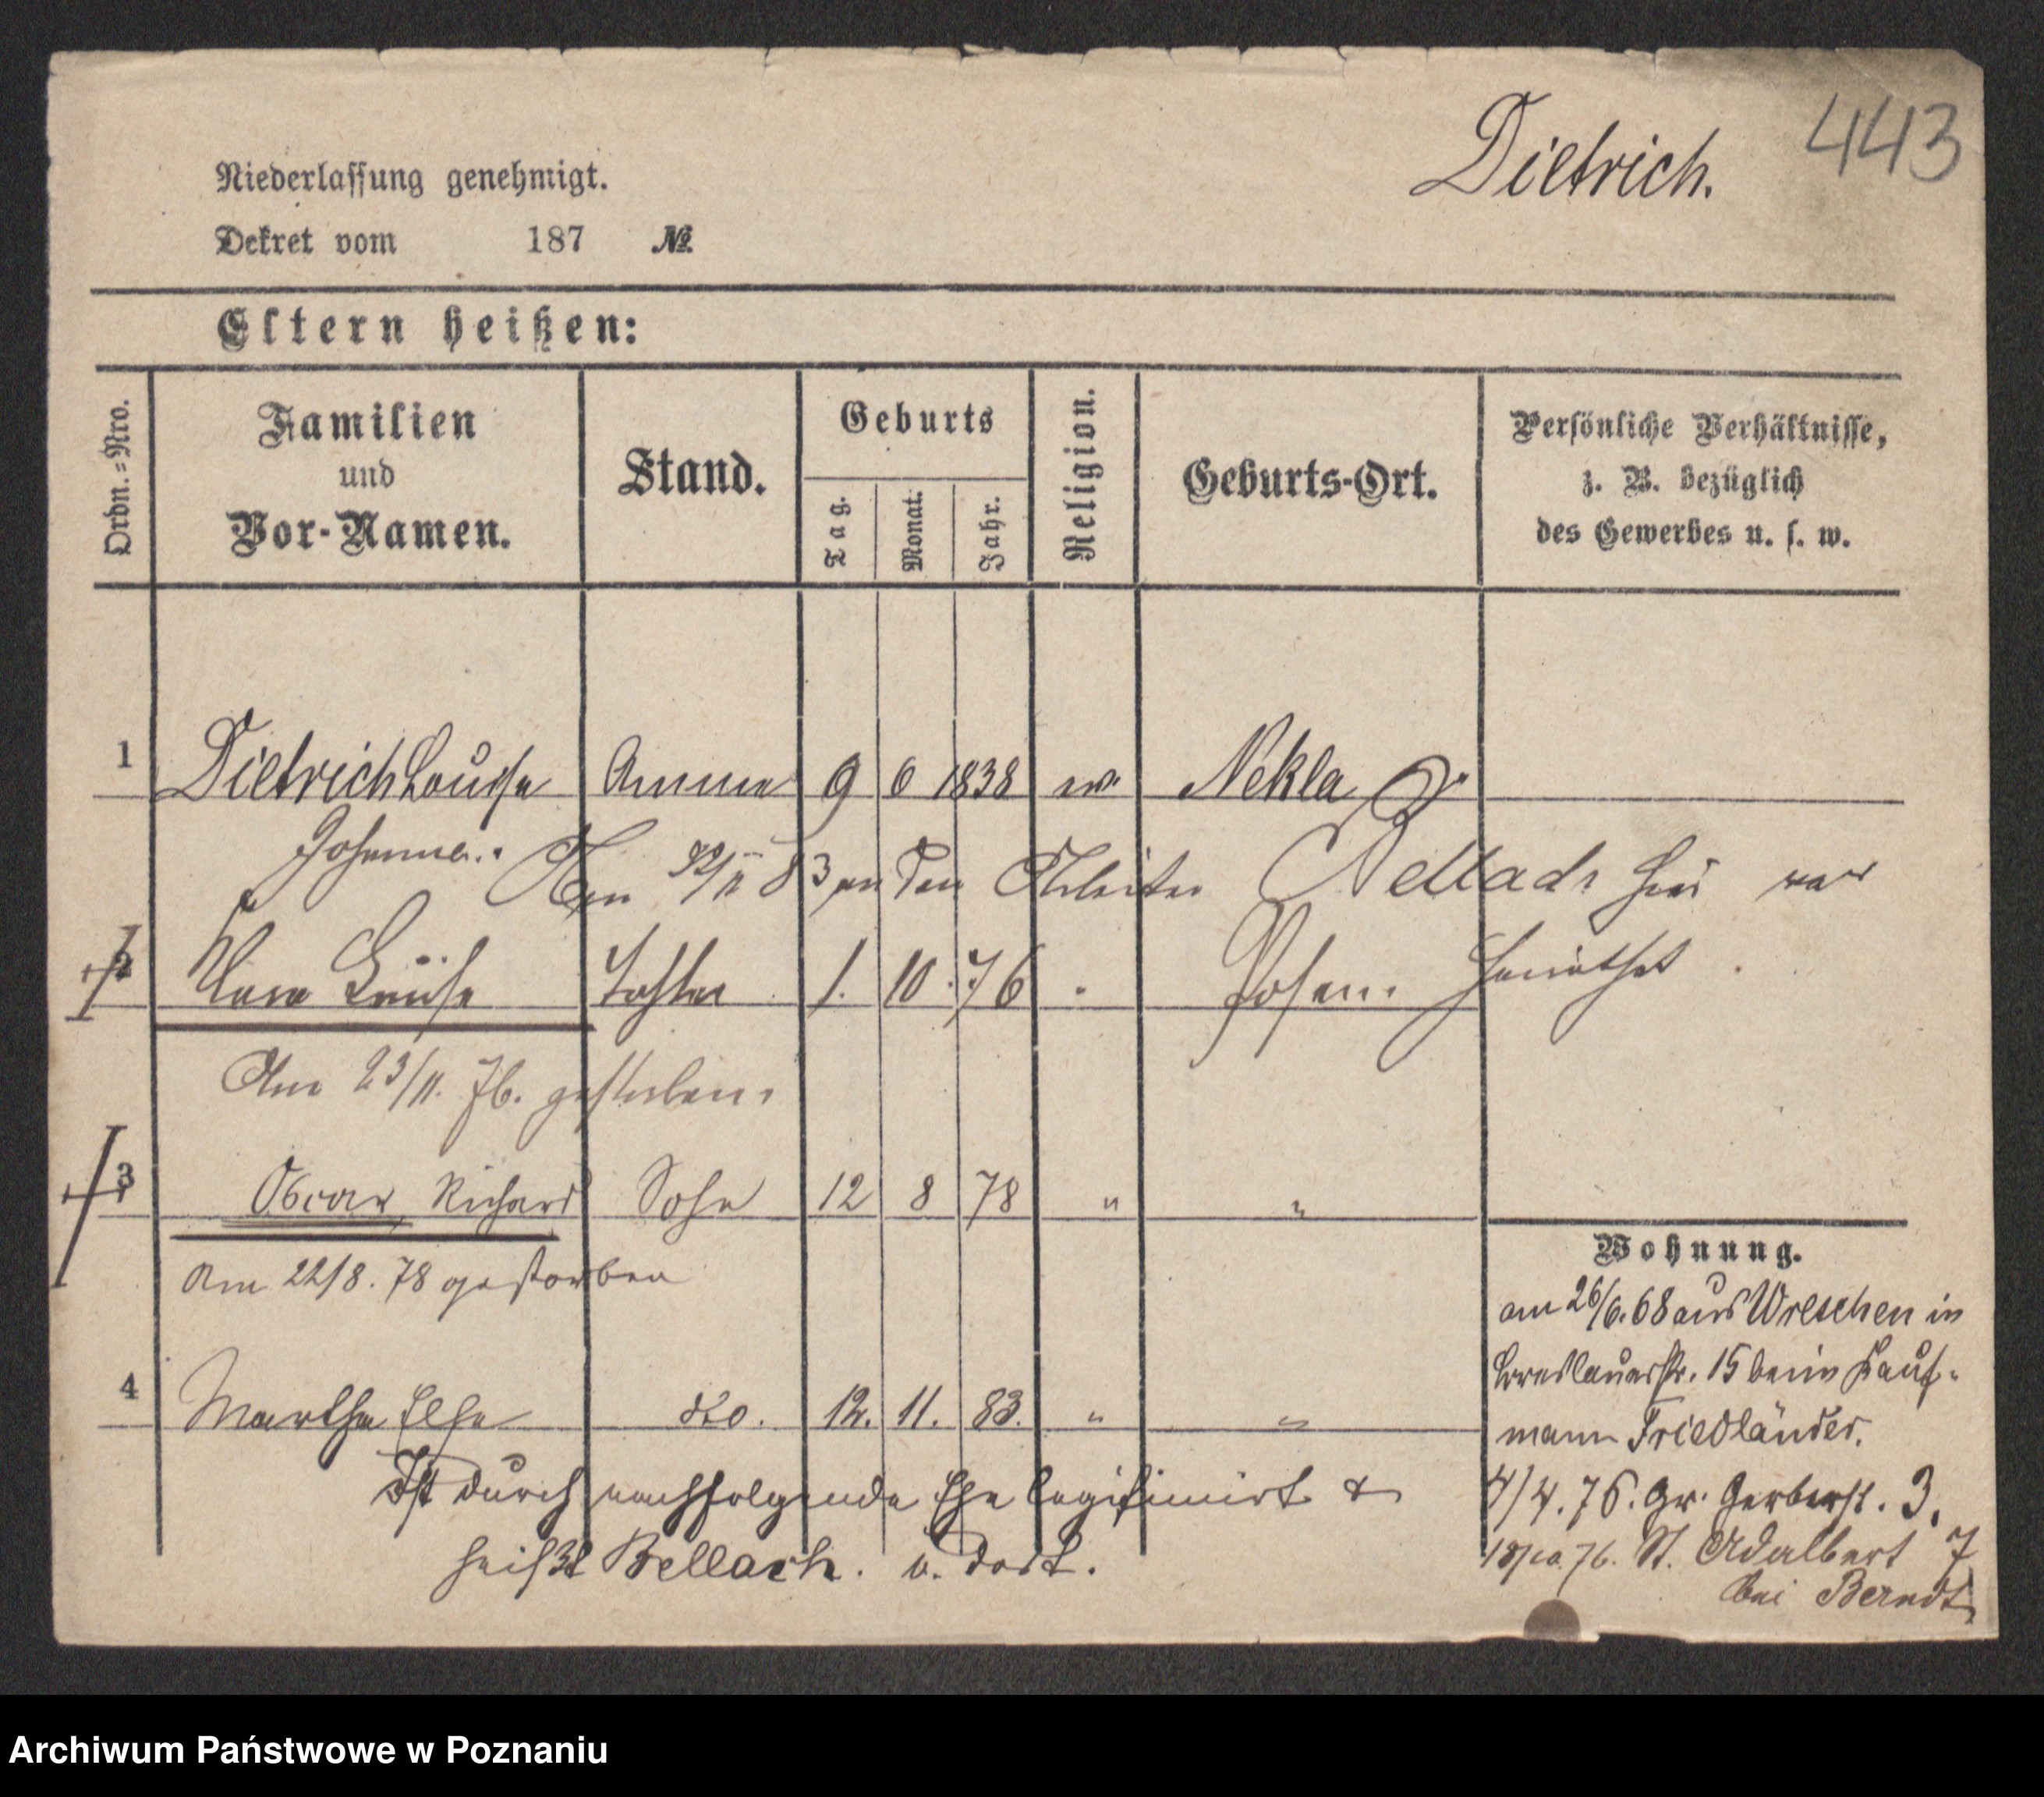 443
Dietrich.
Niederlassung genehmigt.
Dekret vom 187 №
Eltern heißen:
Ordn.=Nro.
Familien und Vor-Namen.
Stand.
Geburts
Tag. Monat. Jahr.
Religion.
Geburts-Ort.
Persönliche Verhältnisse,
z. B. bezüglich
des Gewerbes u. s. w.
1 Dietrich Louise Amme 9 6 1838 ev. Nekla
Johanna. 83 an den Arbeiter Bellach hier ver
heirathet.
2 Clara Louise Tochter 1. 10. 76 " Posen.
Am 23/11. 76. gestorben.
3 Oscar, Richard Sohn 12 8 78 " "
Am 22/8. 78 gestorben
4 Martha Else dto. 12. 11. 83. " "
Ist durch nachfolgende Ehe legitimirt &
heißt Bellach. v. dort.
Wohnung.
am 26/6. 68 aus Wreschen in
Breslauerstr. 15 beim Kauf-
mann Friedländer.
4/4. 76. Gr. Gerberst. 3.
18/10. 76. St. Adalbert 7
bei Berndt
Archiwum Państwowe w Poznaniu